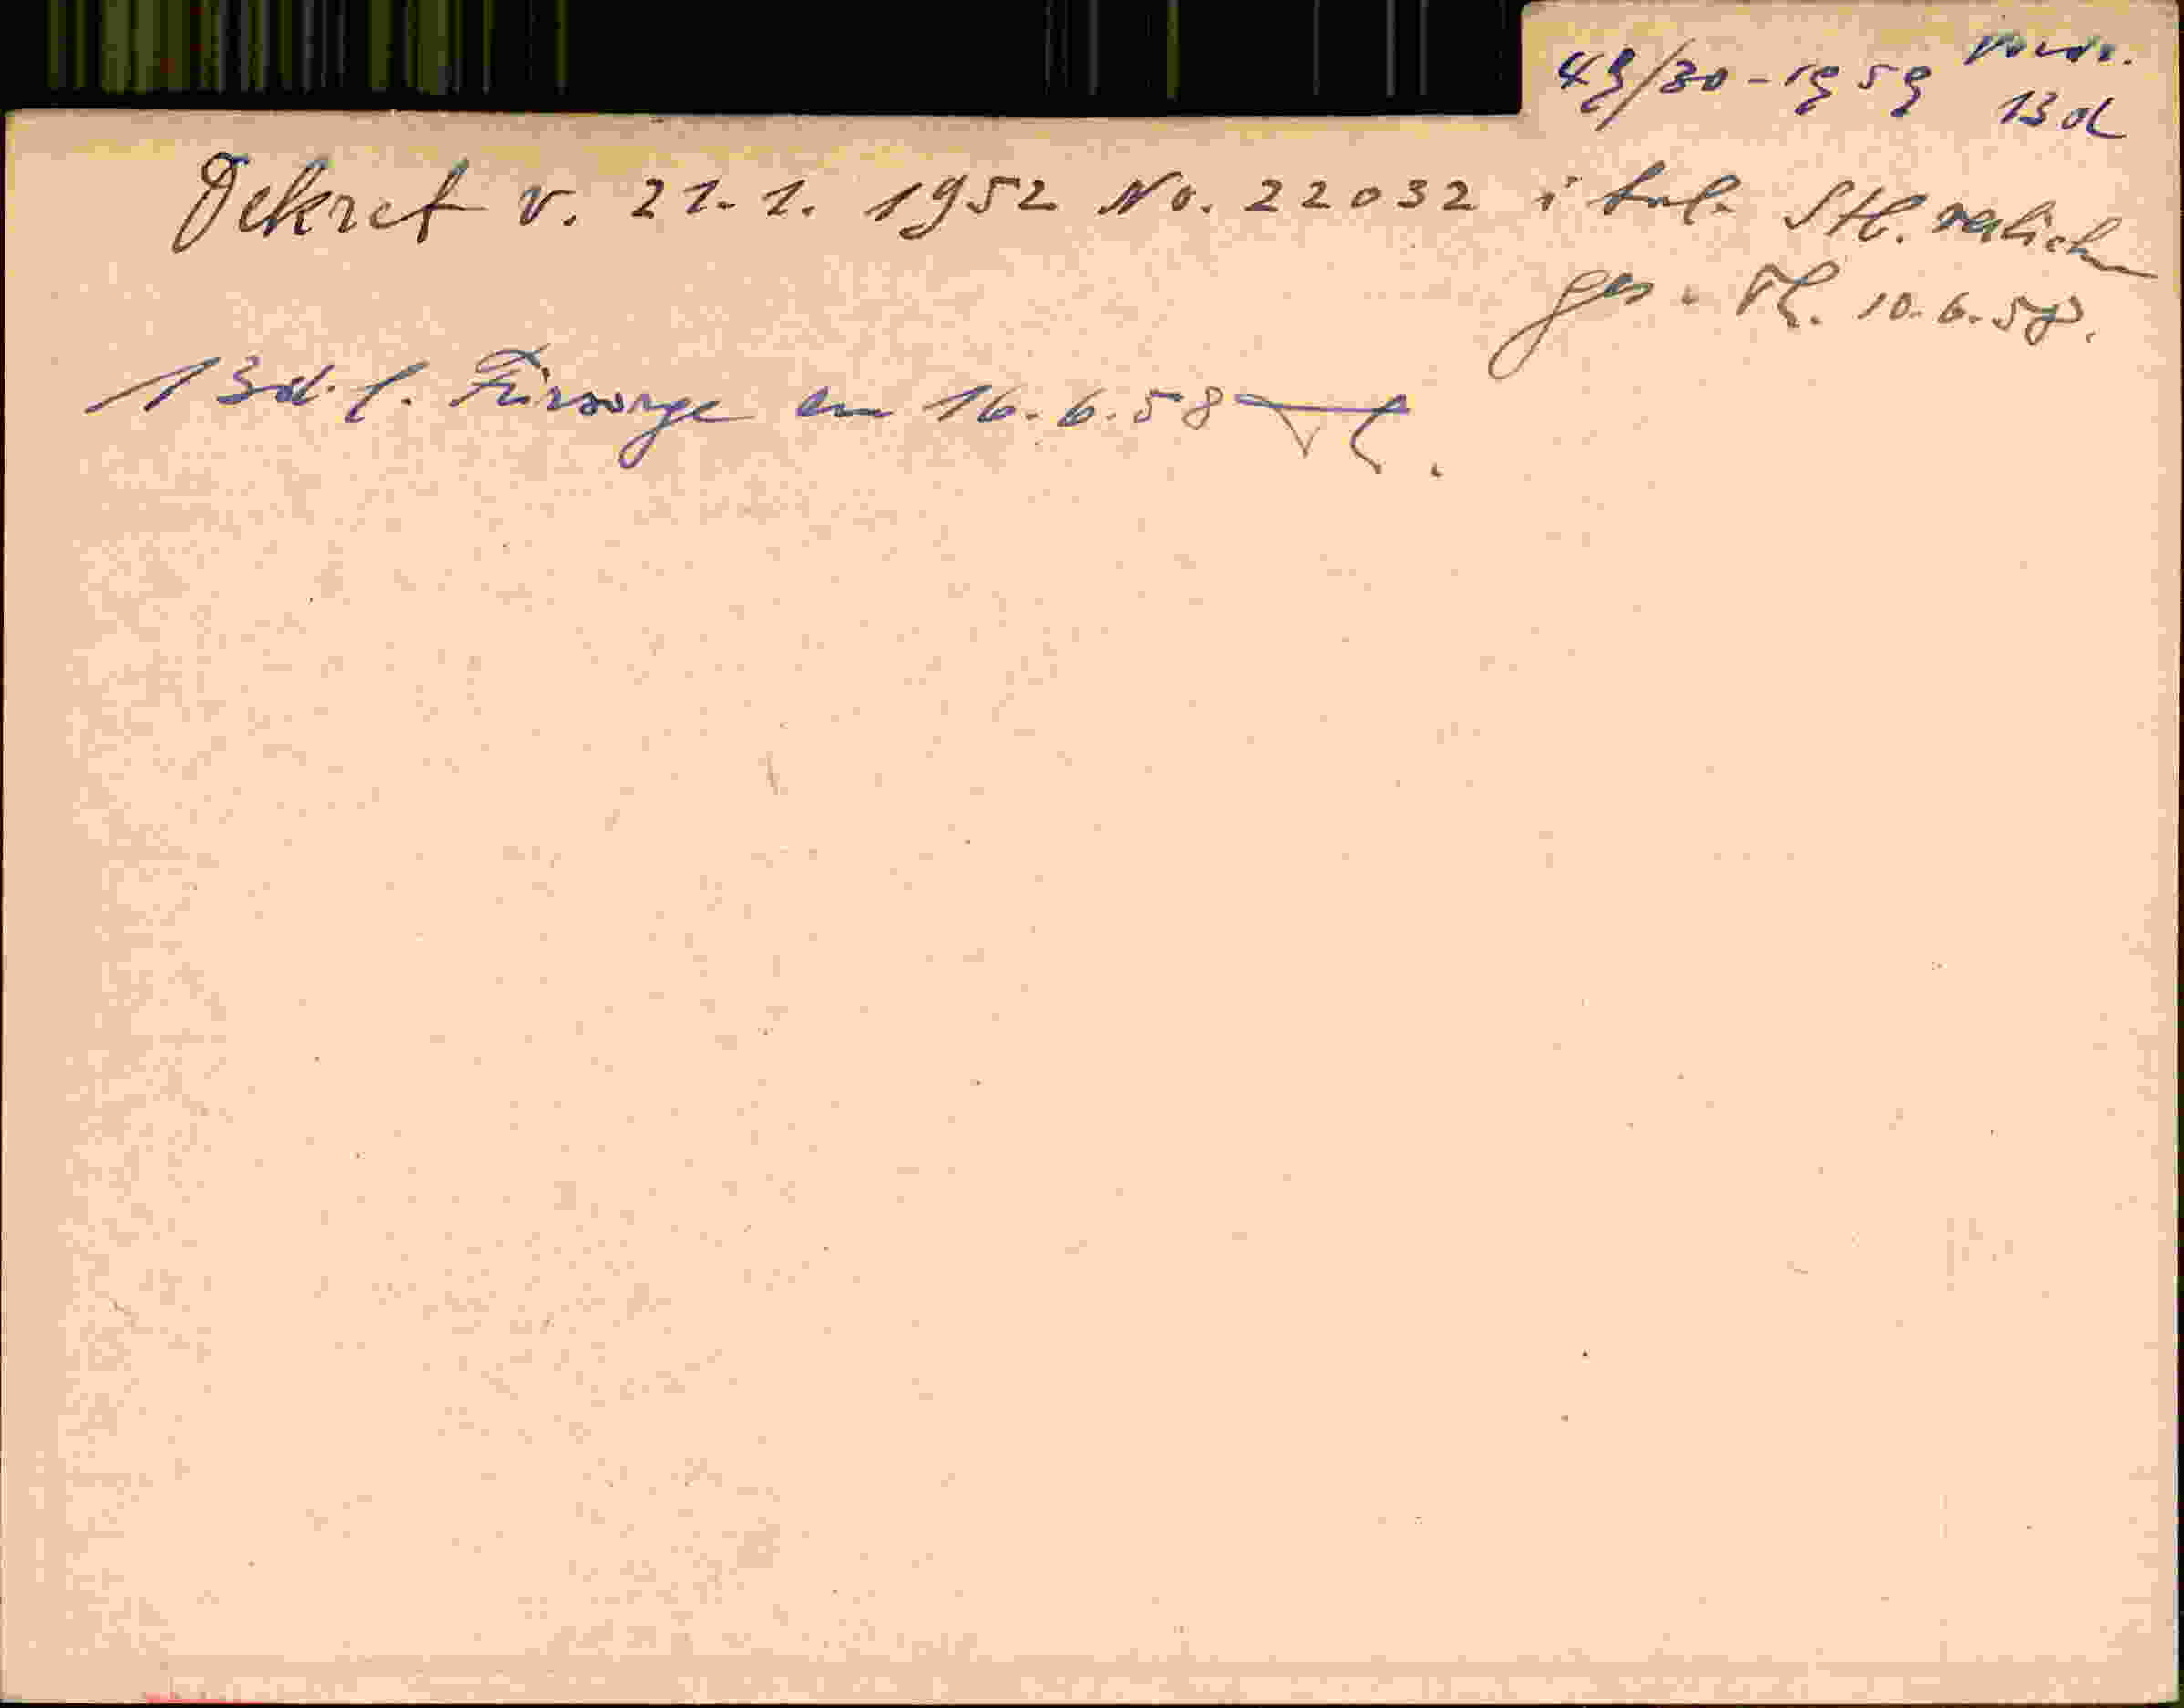 49/30-1959
13d
Dekret v. 21.1. 1952 No. 22032 ital. Stb.
ges. 10.6.58.
1 Bd. f. Fürsorge am 16.6.58